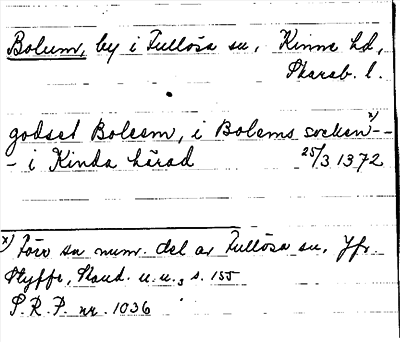 Bolum, by i Fullösa sn, Kinne hd,
Skarab. l.
godset Boleem, i Bolems socken x) - -
- i Kinda härad 25/3 1372
x) Förr sn numr. del av Fullösa sn, Jfr.
Styffe, Skand. u. u., s. 155
S. R. P. nr. 1036